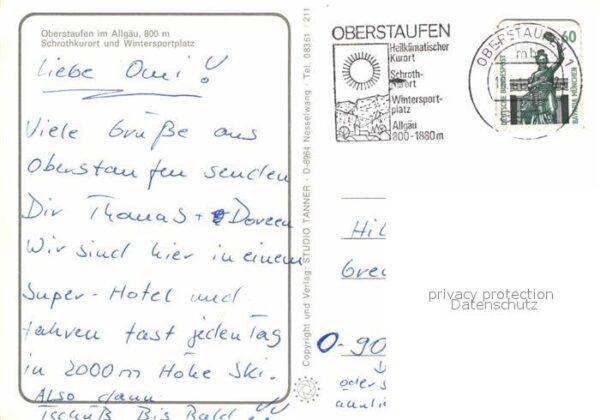 Oberstaufen im Allgäu, 800 m
Schrothkurort und Wintersportplatz
Liebe Omi!
Viele Grüße aus
Oberstaufen senden
Dir Thomas + Doreen
Wir sind hier in einem
Super-Hotel und
fahren fast jeden Tag
in 2000m Höhe Ski.
Also dann
Tschüß Bis Bald!
Copyright und Verlag: STUDIO TANNER · D-8964 Nesselwang · Tel. 08361 / 211
OBERSTAUFEN
Heilklimatischer
Kurort
Schroth-
kurort
Wintersport-
platz
Allgäu
800-1880m
OBERSTAUFEN 1
mb
60
DEUTSCHE BUNDESPOST
BAVARIA MÜNCHEN
Hil
Gre
O-90
oder
privacy protection
Datenschutz